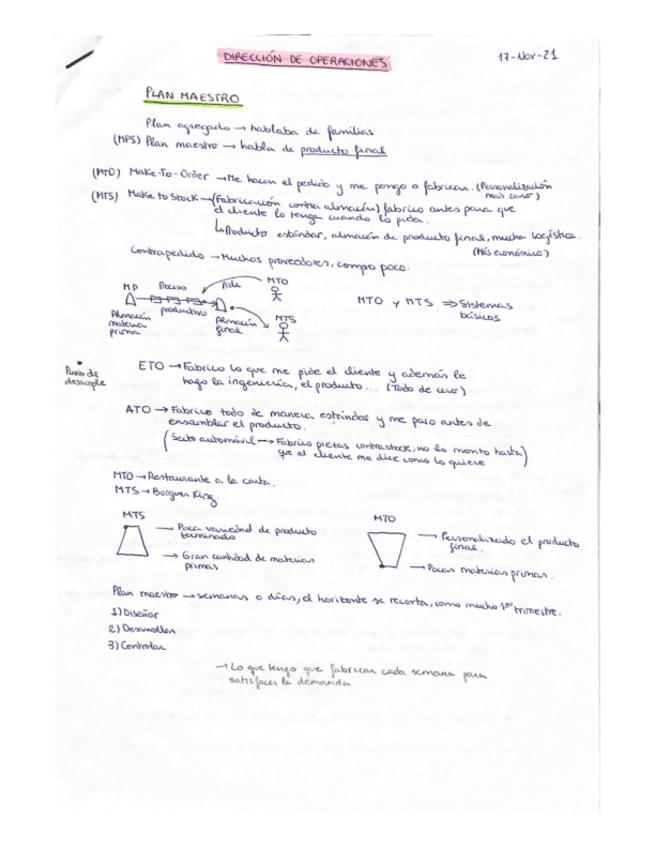 DIRECCIÓN DE OPERACIONES
17-Nov-21
PLAN MAESTRO
Plan agregado → hablaba de familias
(MPS) Plan maestro → habla de producto final
(MTO) Make-To-Order → Me hacen el pedido y me pongo a fabricar. (Personalización
más caro)
(MTS) Make to Stock → (Fabricación contra almacén) fabrico antes para que
el cliente lo tenga cuando lo pida.
↳ Producto estándar, almacén de producto final, mucha logística.
(Más económico)
Contrapedido → Muchos proveedores, compro poco.
MP Proceso Pide MTO
productivo
Almacén
materia
prima
Almacén
final
MTS
MTO y MTS ⇒ Sistemas
básicos
Punto de
desacople
ETO → Fabrico lo que me pide el cliente y además le
hago la ingeniería, el producto... (Todo de cero)
ATO → Fabrico todo de manera estándar y me paro antes de
ensamblar el producto.
(Sector automóvil → Fabrico piezas contrastock, no lo monto hasta
que el cliente me dice como lo quiere)
MTO → Restaurante a la carta.
MTS → Burguer King.
MTS
→ Poca variedad de producto
terminado
→ Gran cantidad de materias
primas
MTO
→ Personalizado el producto
final.
→ Pocas materias primas.
Plan maestro → semanas o días, el horizonte se recorta, como mucho 1er trimestre.
1) Diseñar
2) Desarrollar
3) Controlar
→ Lo que tengo que fabricar cada semana para
satisfacer la demanda